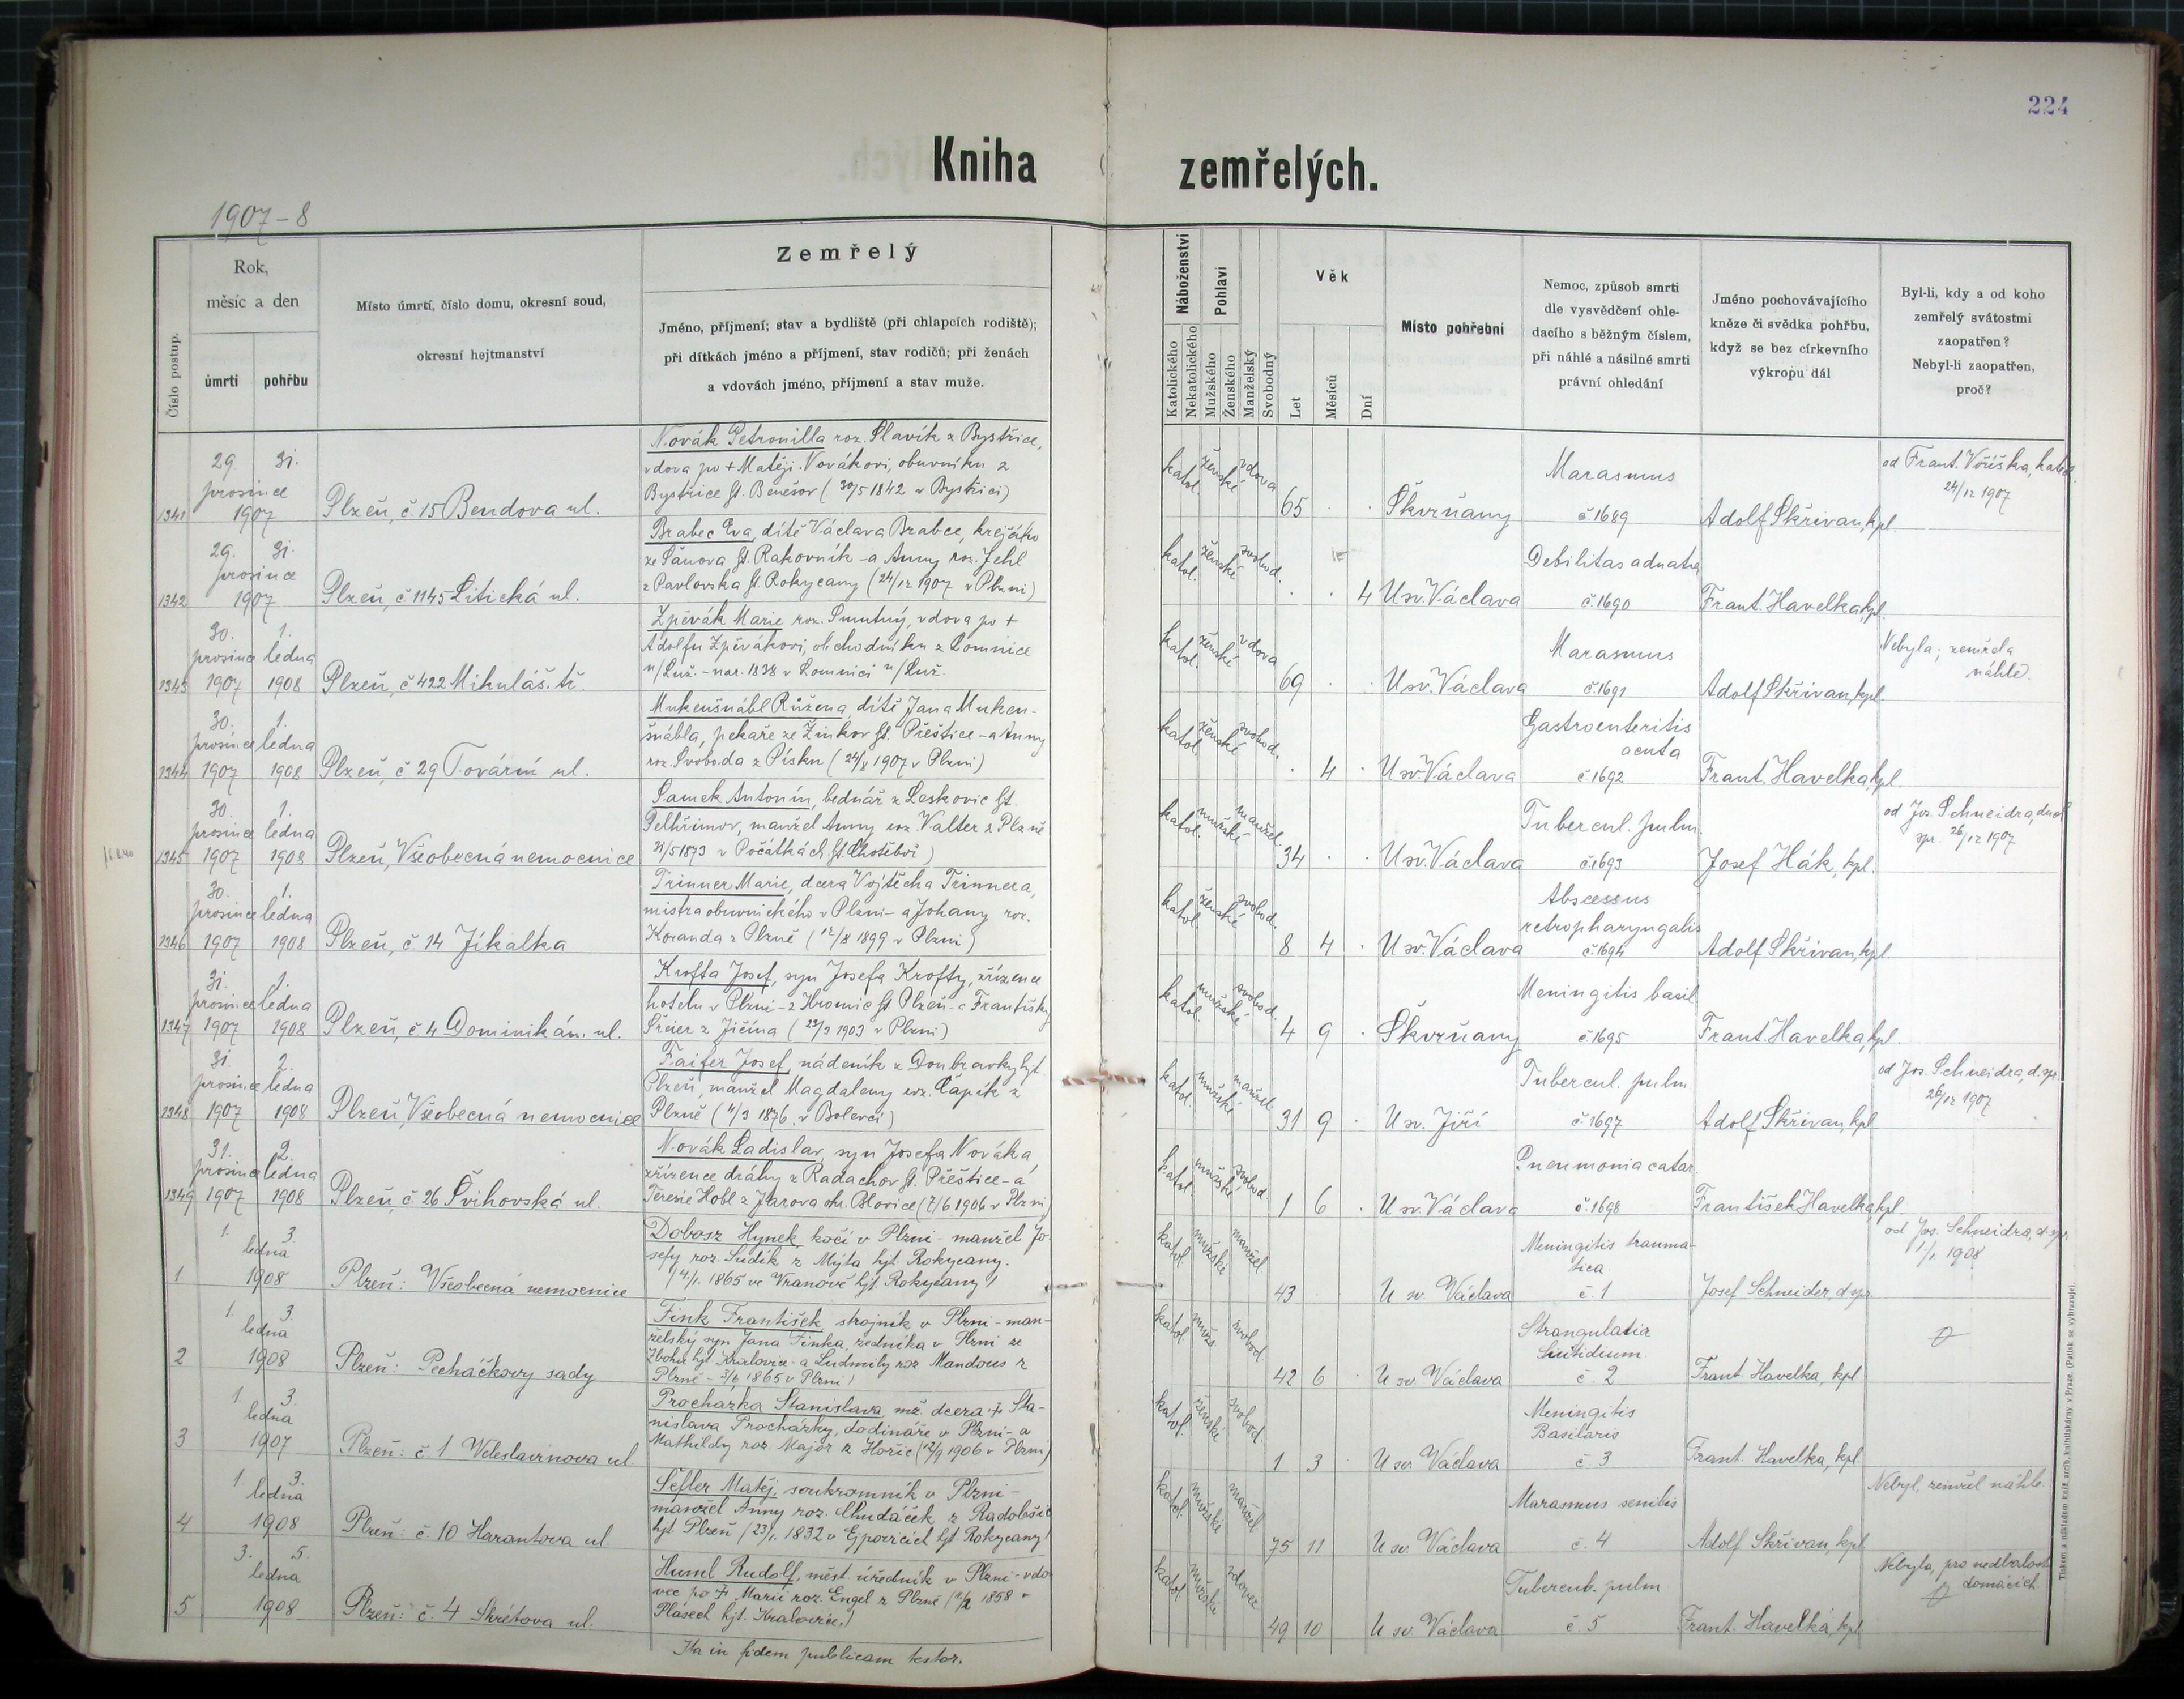 224
Kniha zemřelých.
1907-8
Číslo postup.
Rok,
měsíc a den
úmrtí
pohřbu
Místo úmrtí, číslo domu, okresní soud,
okresní hejtmanství
Zemřelý
Jméno, příjmení; stav a bydliště (při chlapcích rodiště);
při dítkách jméno a příjmení, stav rodičů; při ženách
a vdovách jméno, příjmení a stav muže.
Náboženství
Katolického
Nekatolického
Pohlaví
Mužského
Ženského
Manželský
Svobodný
Věk
Let
Měsíců
Dní
Místo pohřební
Nemoc, způsob smrti
dle vysvědčení ohle-
dacího s běžným číslem,
při náhlé a násilné smrti
právní ohledání
Jméno pochovávajícího
kněze či svědka pohřbu,
když se bez církevního
výkropu dál
Byl-li, kdy a od koho
zemřelý svátostmi
zaopatřen?
Nebyl-li zaopatřen,
proč?
1341
29. 31.
prosince
1907
Plzeň, č. 15 Bendova ul.
Novák Petronilla roz. Slavík z Bystřice,
vdova po + Matěji Novákovi, obuvníku z
Bystřice ht. Benešov (30/5 1842 v Bystřici)
katol. ženské vdova
65
Škvrňany
Marasmus
č. 1689
Adolf Skřivan, kpl.
od Frant. Voříška,
24/12 1907
1342
29. 31.
prosince
1907
Plzeň, č 1145 Litická ul.
Brabec Eva, dítě Václava Brabce, krejčího
ze Šanova ht. Rakovník - a Anny roz. Jehl
z Pavlovska ht. Rokycany (24/12 1907 v Plzni)
katol. ženské svobod.
4
U sv. Václava
Debilitas adnata
č. 1690
Frant. Havelka, kpl.
1343
30. 1.
prosince ledna
1907 1908
Plzeň, č 422 Mikuláš. tř.
Zpěvák Marie roz. Smutný, vdova po +
Adolfu Zpěvákovi, obchodníku z Lomnice
n/Luž. - nar. 1838 v Lomnici n/Luž.
katol. ženské vdova
69
U sv. Václava
Marasmus
č. 1691
Adolf Skřivan, kpl.
Nebyla; zemřela
náhle.
1344
30. 1.
prosince ledna
1907 1908
Plzeň, č 29 Tovární ul.
Mukenšnábl Růžena, dítě Jana Muken-
šnábla, pekaře ze Žinkov ht. Přeštice - a Anny
roz. Svoboda z Písku (24/8 1907 v Plzni)
katol. ženské svobod.
4
U sv. Václava
Gastroenteritis
acuta
č. 1692
Frant. Havelka, kpl.
1345
30. 1.
prosince ledna
1907 1908
Plzeň, Všeobecná nemocnice
Samek Antonín, bednář z Leskovic ht.
Pelhřimov, manžel Anny roz. Valter z Plzně
21/5 1873 v Počátkách ht.
katol. mužské manžel.
34
U sv. Václava
Tubercul. pulm.
č. 1693
Josef Hák, kpl.
od Jos. Schneidra, duch
spr. 26/12 1907
1346
30. 1.
prosince ledna
1907 1908
Plzeň, č 14 Jíkalka
Trinner Marie, dcera Vojtěcha Trinnera,
mistra obuvnického v Plzni - a Johany roz.
Koranda z Plzně (12/8 1899 v Plzni)
katol. ženské svobod.
8 4
U sv. Václava
Abscessus
retropharyngalis
č. 1694
Adolf Skřivan, kpl.
1347
31. 1.
prosince ledna
1907 1908
Plzeň, č 4 Dominikán. ul.
Krofta Josef, syn Josefa Krofty, zřízence
hotelu v Plzni - z Hromic ht. Plzeň - a Františky
Šreier z Jičína (23/3 1903 v Plzni)
katol. mužské svobod.
4 9
Škvrňany
Meningitis basil.
č. 1695
Frant. Havelka, kpl.
1348
31. 2.
prosince ledna
1907 1908
Plzeň, Všeobecná nemocnice
Faifer Josef, nádeník z Doubravky hjt.
Plzeň, manžel Magdaleny roz. Čapík z
Plzně (4/3 1876 v Bolevci)
katol. mužské manžel.
31 9
U sv. Jiří
Tubercul. pulm.
č. 1697
Adolf Skřivan, kpl
od Jos. Schneidra, d. spr.
26/12 1907
1349
31. 2.
prosince ledna
1907 1908
Plzeň, č. 26 Švihovská ul.
Novák Ladislav, syn Josefa Nováka,
zřízence dráhy z Radachov ht. Přeštice - a
Terezie Hobl z Jarova okr. Blovice (7/6 1906 v Plzni)
katol. mužské svobod.
1 6
U sv. Václava
Pneumonia catar.
č. 1698
František Havelka, kpl.
1
1. 3.
ledna
1908
Plzeň: Všeobecná nemocnice
Dobosz Hynek kočí v Plzni - manžel Jo-
sefy roz. Sudík z Mýta hjt. Rokycany.
(4/1. 1865 ve Vranově hjt. Rokycany)
katol. mužské manžel
43
U sv. Václava
Meningitis trauma-
tica.
č. 1
Josef Schneider, d spr.
od Jos. Schneidra, d. spr.
1/1 1908
2
1. 3.
ledna
1908
Plzeň: Pecháčkovy sady
Fink František, strojník v Plzni - man-
želský syn Jana Finka, zedníka v Plzni ze
hjt. Kralovice - a Ludmily roz. Mandous z
Plzně - 3/6 1865 v Plzni)
katol. mužs. svobod.
42 6
U sv. Václava
Strangulatio
č. 2
Frant Havelka, kpl.
3
1. 3.
ledna
1907
Plzeň: č 1 Veleslavínova ul.
Procházka Stanislava, mž. dcera + Sta-
nislava Procházky, hodináře v Plzni - a
Mathildy roz. Major z Hořic (12/9 1906 v Plzni)
katol. ženské svobod.
1 3
U sv. Václava
Meningitis
Basilaris
č. 3
Frant. Havelka, kpl.
4
1. 3.
ledna
1908
Plzeň: č. 10 Harantova ul.
Šefler Matěj, soukromník v Plzni -
manžel Anny roz. Chudáček z Radobčic
hjt. Plzeň (23/1. 1832 v Ejpovicích hjt. Rokycany)
katol. mužské manžel
75 11
U sv. Václava
Marasmus senilis
č. 4
Adolf Skřivan, kpl
Nebyl, zemřel náhle.
5
3. 5.
ledna
1908
Plzeň: č. 4 Skrétova ul.
Huml Rudolf, měst. úředník v Plzni - vdo-
vec po + Marii roz. Engel z Plzně 1858 v
Plasech hjt. Kralovice.)
katol. mužské vdovec
49 10
U sv. Václava
Tubercul. pulm.
č 5
Frant. Havelka, kpl
Nebyla, pro nedbalost
domácích.
Ita in fidem publicam testor.
Tiskem a nákladem kníž. arcib. knihtiskárny v Praze. (Patisk se vyhrazuje).